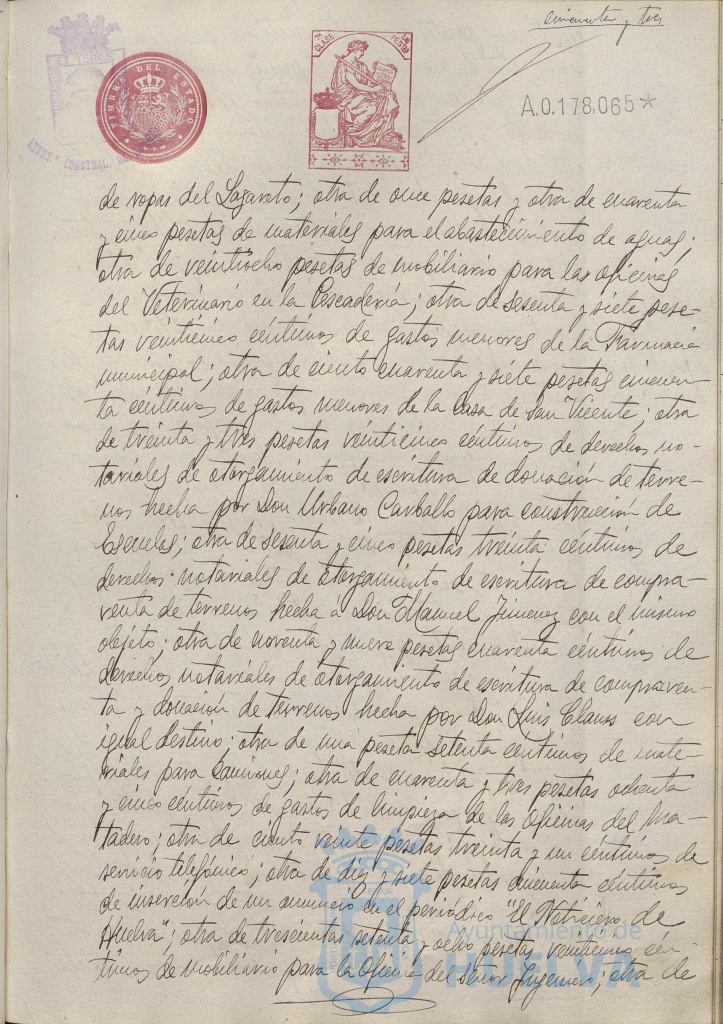 cincuenta y tres
TIMBRE DEL ESTADO
7ª CLASE
PESETAS
A.0.178.065*
AYUNT. CONSTNAL. DE
de ropas del Lazareto; otra de once pesetas y otra de cuarenta
y cinco pesetas de materiales para el abastecimiento de aguas;
otra de veintiocho pesetas de mobiliario para las oficinas
del Veterinario en la Pescadería; otra de sesenta y siete pese-
tas veinticinco céntimos de gastos menores de la Farmacia
municipal; otra de ciento cuarenta y siete pesetas cincuen
ta céntimos de gastos menores de la Casa de San Vicente; otra
de treinta y tres pesetas veinticinco céntimos de derechos no-
tariales de otorgamiento de escritura de donación de terre-
nos hecha por Don Urbano Carballo para construcción de
Escuelas; otra de sesenta y cinco pesetas treinta céntimos de
derechos notariales de otorgamiento de escritura de compra-
venta de terrenos hecha a Don Manuel Jimenez con el mismo
objeto; otra de noventa y nueve pesetas cuarenta céntimos de
derechos notariales de otorgamiento de escritura de compraven-
ta y donación de terrenos hecha por Don Luis Clauss con
igual destino; otra de una peseta setenta céntimos de mate-
riales para Camiones; otra de cuarenta y tres pesetas ochenta
y cinco céntimos de gastos de limpieza de las oficinas del Ma-
tadero; otra de ciento veinte pesetas treinta y un céntimos de
servicio telefónico; otra de diez y siete pesetas cincuenta céntimos
de inserción de un anuncio en el periódico "El Noticiero de
Huelva"; otra de trescientas setenta y ocho pesetas veinticinco cén-
timos de mobiliario para la Oficina del Señor Ingeniero; otra de
Ayuntamiento de
HUELVA